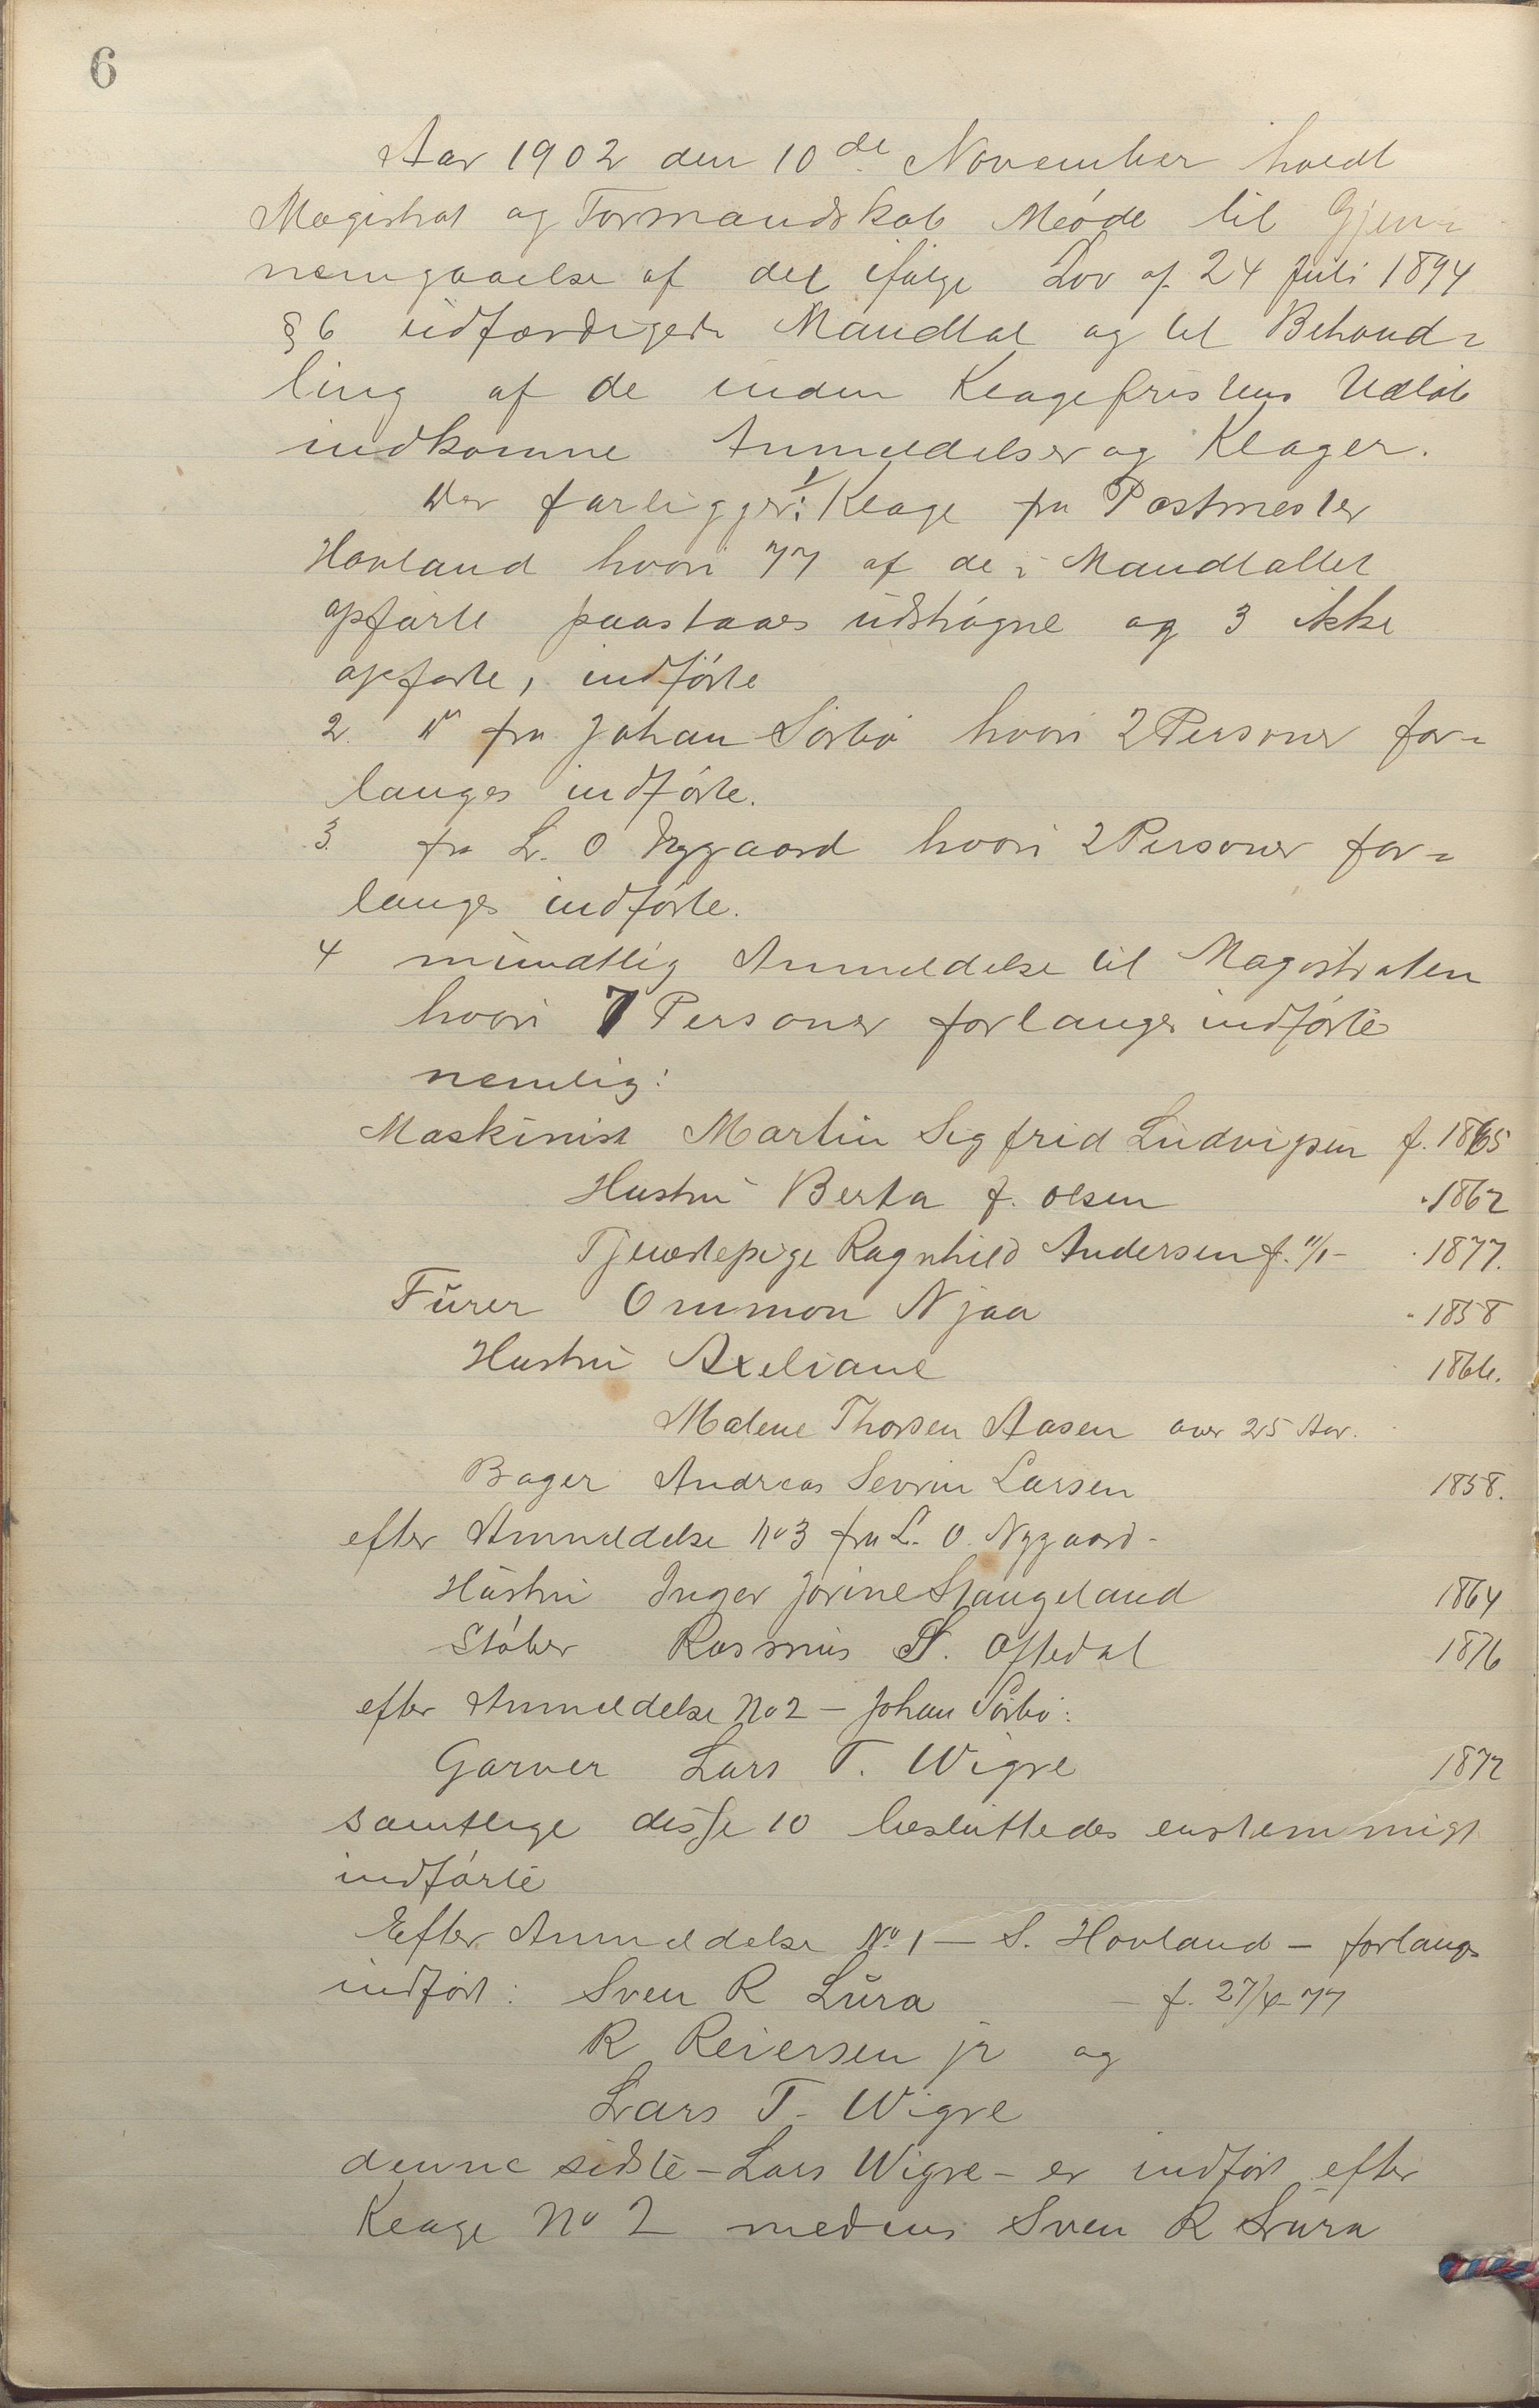 6
Aar 1902 den 10de November holdt
Magistrat og Formandskab Møde til Gjen-
nemgaaelse af det ifølge Lov af 24 Juli 1894
§ 6 udfærdigede Mandtal og til Behand-
ling af de inden Klagefristens Udløb
indkomne Anmeldelser og Klager.
Der forligger: 1/ Klage fra Postmester
Hovland hvori 77 af de i Mandtallet
opførte paastaaes udstrøgne og 3 ikke
opførte, indførte
2. Do fra Johan Sørbø hvori 2 Personer for-
langes indførte.
3. fra L. O Nygaard hvori 2 Personer for-
langes indførte.
4 mundtlig Anmeldelse til Magistraten
hvori 7 Personer forlanges indførte
nemlig:
Maskinist Martin Sigfrid Ludvigsen f. 1865
Hustru Berta f. Olsen " 1862
Tjenestepige Ragnhild Andersen f. 11/1 - " 1877.
Fürer Ommon Njaa " 1858
Hustru Axeliane 1866.
Malene Thorsen Aasen over 25 Aar.
Bager Andreas Sevrin Larsen 1858.
efter Anmeldelse No 3 fra L. O. Nygaard -
Hustru Inger Jorine Stangeland 1864
Støber Rasmus S. Oftedal 1876
efter Anmeldelse No 2 - Johan Sørbø:
Garver Lars T. Wigre 1872
samtlige disse 10 besluttedes enstemmigt
indførte
Efter Anmeldelse No 1 - S. Hovland - forlanges
indført: Sven R Lura - f. 27/4-77
R Reiersen jr og
Lars T. Wigre
denne sidste - Lars Wigre - er indført efter
Klage No 2 medens Sven R Lura